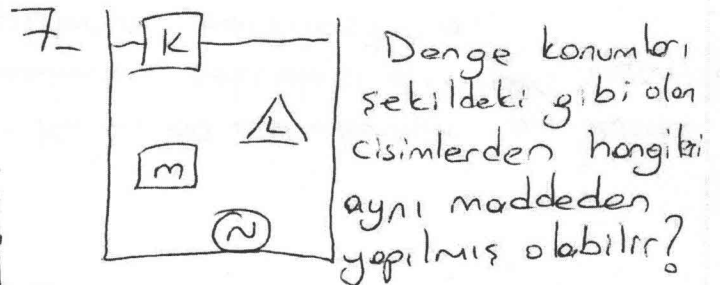 7-
K
L
M
N
Denge konumları
şekildeki gibi olan
cisimlerden hangileri
aynı maddeden
yapılmış olabilir?